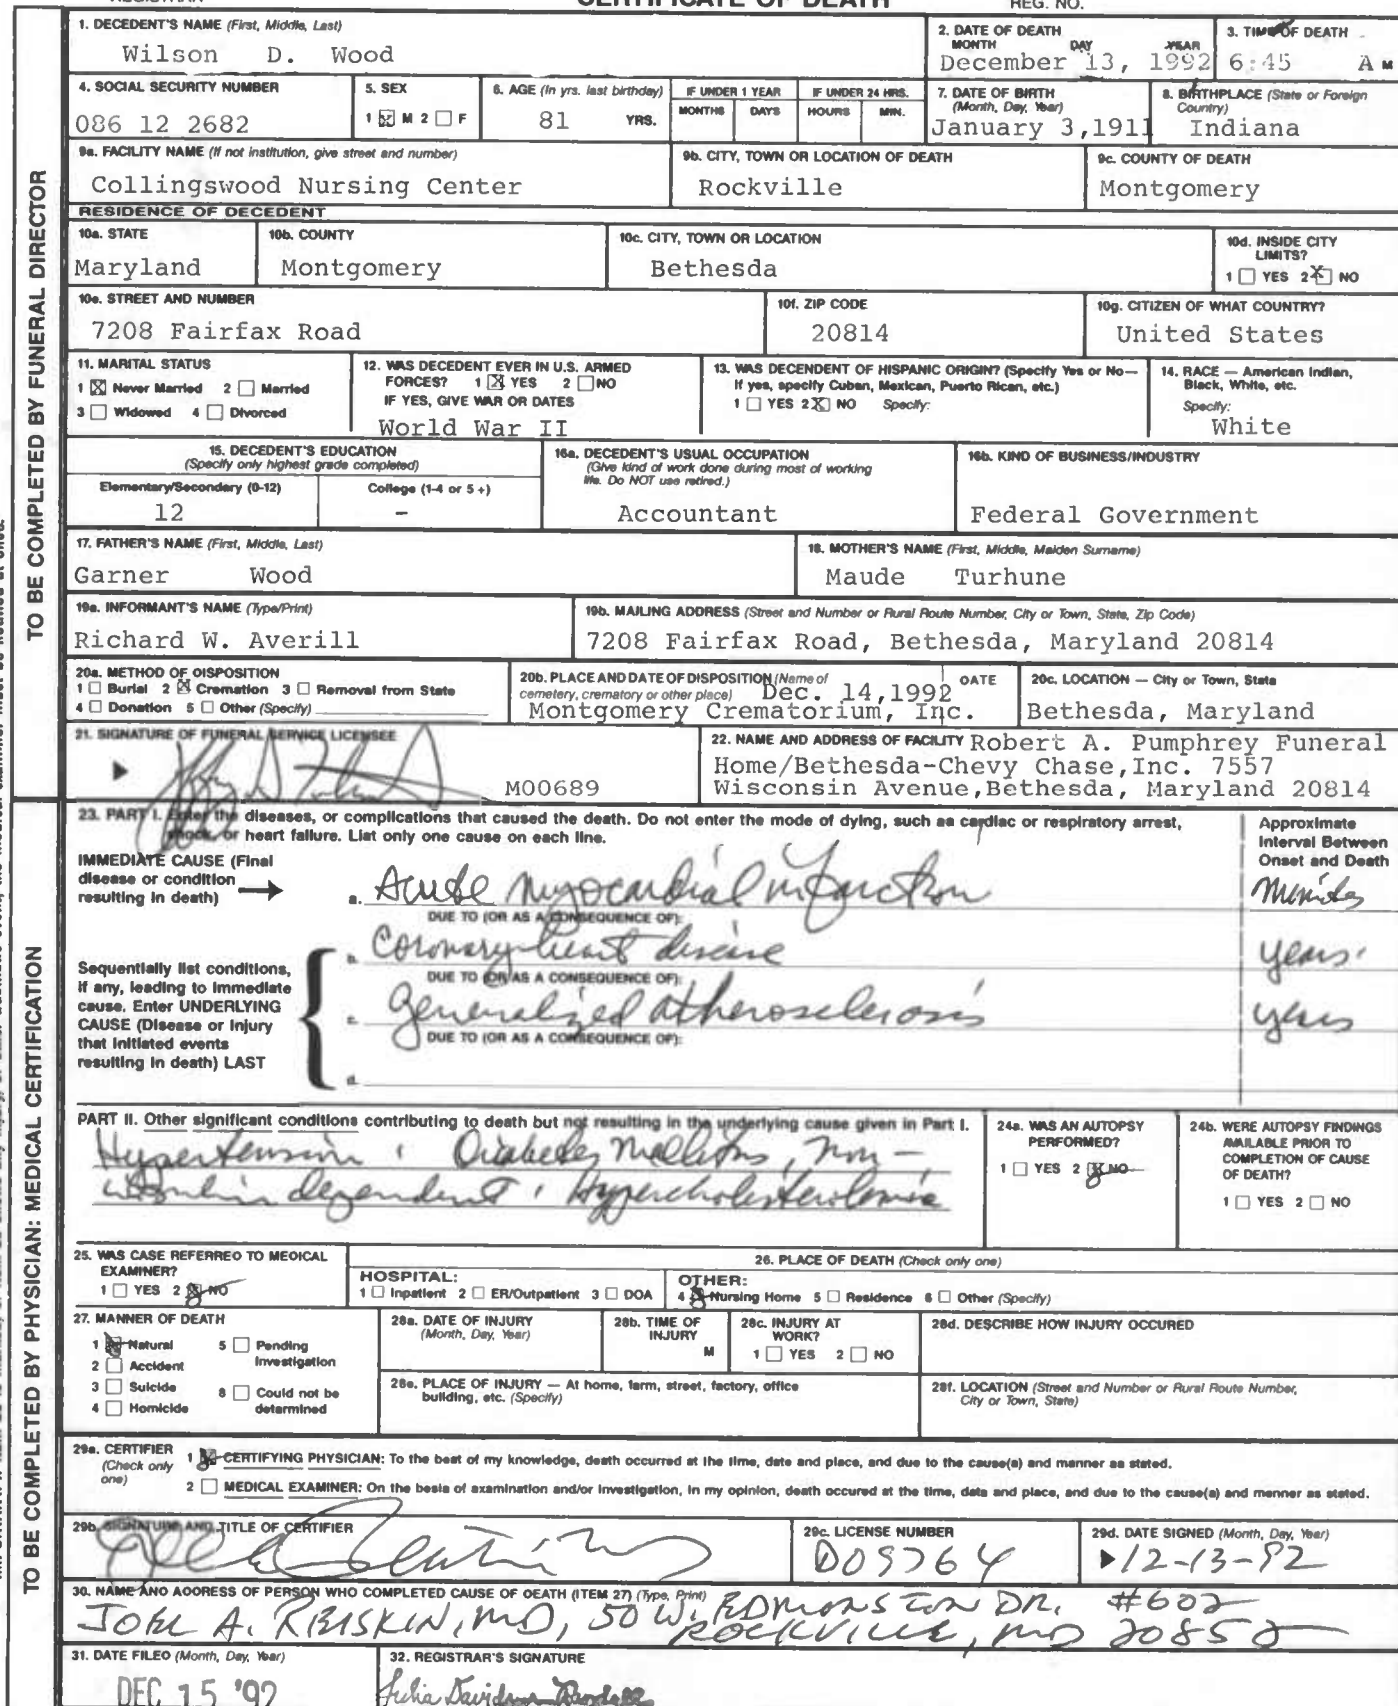 CERTIFICATE OF DEATH
REG. NO.
1. DECEDENT'S NAME (First, Middle, Last)
Wilson D. Wood
2. DATE OF DEATH
MONTH DAY YEAR
December 13, 1992
3. TIME OF DEATH
6:45 A M
4. SOCIAL SECURITY NUMBER
086 12 2682
5. SEX
1 ☒ M 2 ☐ F
6. AGE (In yrs. last birthday)
81 YRS.
IF UNDER 1 YEAR
MONTHS DAYS
IF UNDER 24 HRS.
HOURS MIN.
7. DATE OF BIRTH
(Month, Day, Year)
January 3,1911
8. BIRTHPLACE (State or Foreign
Country)
Indiana
9a. FACILITY NAME (If not institution, give street and number)
Collingswood Nursing Center
9b. CITY, TOWN OR LOCATION OF DEATH
Rockville
9c. COUNTY OF DEATH
Montgomery
RESIDENCE OF DECEDENT
10a. STATE
Maryland
10b. COUNTY
Montgomery
10c. CITY, TOWN OR LOCATION
Bethesda
10d. INSIDE CITY
LIMITS?
1 ☐ YES 2 ☒ NO
10e. STREET AND NUMBER
7208 Fairfax Road
10f. ZIP CODE
20814
10g. CITIZEN OF WHAT COUNTRY?
United States
11. MARITAL STATUS
1 ☒ Never Married 2 ☐ Married
3 ☐ Widowed 4 ☐ Divorced
12. WAS DECEDENT EVER IN U.S. ARMED
FORCES? 1 ☒ YES 2 ☐ NO
IF YES, GIVE WAR OR DATES
World War II
13. WAS DECENDENT OF HISPANIC ORIGIN? (Specify Yes or No—
If yes, specify Cuban, Mexican, Puerto Rican, etc.)
1 ☐ YES 2 ☒ NO Specify:
14. RACE — American Indian,
Black, White, etc.
Specify:
White
15. DECEDENT'S EDUCATION
(Specify only highest grade completed)
Elementary/Secondary (0-12)
12
College (1-4 or 5 +)
-
16a. DECEDENT'S USUAL OCCUPATION
(Give kind of work done during most of working
life. Do NOT use retired.)
Accountant
16b. KIND OF BUSINESS/INDUSTRY
Federal Government
17. FATHER'S NAME (First, Middle, Last)
Garner Wood
18. MOTHER'S NAME (First, Middle, Maiden Surname)
Maude Turhune
19a. INFORMANT'S NAME (Type/Print)
Richard W. Averill
19b. MAILING ADDRESS (Street and Number or Rural Route Number, City or Town, State, Zip Code)
7208 Fairfax Road, Bethesda, Maryland 20814
20a. METHOD OF DISPOSITION
1 ☐ Burial 2 ☒ Cremation 3 ☐ Removal from State
4 ☐ Donation 5 ☐ Other (Specify)
20b. PLACE AND DATE OF DISPOSITION (Name of
cemetery, crematory or other place) DATE
Dec. 14,1992
Montgomery Crematorium, Inc.
20c. LOCATION — City or Town, State
Bethesda, Maryland
21. SIGNATURE OF FUNERAL SERVICE LICENSEE
M00689
22. NAME AND ADDRESS OF FACILITY Robert A. Pumphrey Funeral
Home/Bethesda-Chevy Chase,Inc. 7557
Wisconsin Avenue,Bethesda, Maryland 20814
TO BE COMPLETED BY FUNERAL DIRECTOR
23. PART I. Enter the diseases, or complications that caused the death. Do not enter the mode of dying, such as cardiac or respiratory arrest,
shock, or heart failure. List only one cause on each line.
Approximate
Interval Between
Onset and Death
IMMEDIATE CAUSE (Final
disease or condition
resulting in death)
a. Acute myocardial infarction
Minutes
DUE TO (OR AS A CONSEQUENCE OF):
b. Coronary heart disease
years
DUE TO (OR AS A CONSEQUENCE OF):
c. generalized atherosclerosis
years
DUE TO (OR AS A CONSEQUENCE OF):
d.
Sequentially list conditions,
if any, leading to immediate
cause. Enter UNDERLYING
CAUSE (Disease or injury
that initiated events
resulting in death) LAST
PART II. Other significant conditions contributing to death but not resulting in the underlying cause given in Part I.
Hypertension, Diabetes Mellitus, non-
insulin dependent, Hypercholesterolemia
24a. WAS AN AUTOPSY
PERFORMED?
1 ☐ YES 2 ☒ NO
24b. WERE AUTOPSY FINDINGS
AVAILABLE PRIOR TO
COMPLETION OF CAUSE
OF DEATH?
1 ☐ YES 2 ☐ NO
25. WAS CASE REFERRED TO MEDICAL
EXAMINER?
1 ☐ YES 2 ☒ NO
26. PLACE OF DEATH (Check only one)
HOSPITAL:
1 ☐ Inpatient 2 ☐ ER/Outpatient 3 ☐ DOA
OTHER:
4 ☒ Nursing Home 5 ☐ Residence 6 ☐ Other (Specify)
27. MANNER OF DEATH
1 ☒ Natural 5 ☐ Pending
Investigation
2 ☐ Accident
3 ☐ Suicide 8 ☐ Could not be
determined
4 ☐ Homicide
28a. DATE OF INJURY
(Month, Day, Year)
28b. TIME OF
INJURY
M
28c. INJURY AT
WORK?
1 ☐ YES 2 ☐ NO
28d. DESCRIBE HOW INJURY OCCURED
28e. PLACE OF INJURY — At home, farm, street, factory, office
building, etc. (Specify)
28f. LOCATION (Street and Number or Rural Route Number,
City or Town, State)
29a. CERTIFIER
(Check only
one)
1 ☒ CERTIFYING PHYSICIAN: To the best of my knowledge, death occurred at the time, date and place, and due to the cause(s) and manner as stated.
2 ☐ MEDICAL EXAMINER: On the basis of examination and/or investigation, in my opinion, death occured at the time, date and place, and due to the cause(s) and manner as stated.
29b. SIGNATURE AND TITLE OF CERTIFIER
29c. LICENSE NUMBER
D09764
29d. DATE SIGNED (Month, Day, Year)
12-13-92
30. NAME AND ADDRESS OF PERSON WHO COMPLETED CAUSE OF DEATH (ITEM 27) (Type, Print)
JOEL A. REISKIN, MD, 50 W. EDMONSTON DR. #602
ROCKVILLE, MD 20852
31. DATE FILED (Month, Day, Year)
DEC 15 '92
32. REGISTRAR'S SIGNATURE
Julia Davidson-Randall
TO BE COMPLETED BY PHYSICIAN: MEDICAL CERTIFICATION